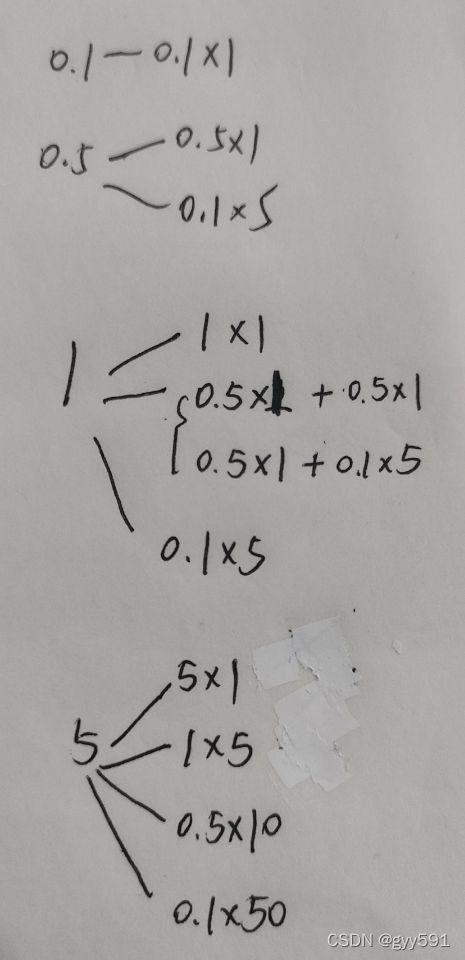 0.1 — 0.1×1
0.5 0.5×1
0.1×5
1 1×1
0.5×1 + 0.5×1
0.5×1 + 0.1×5
0.1×5
5×1
5 1×5
0.5×10
0.1×50
CSDN @gyy591